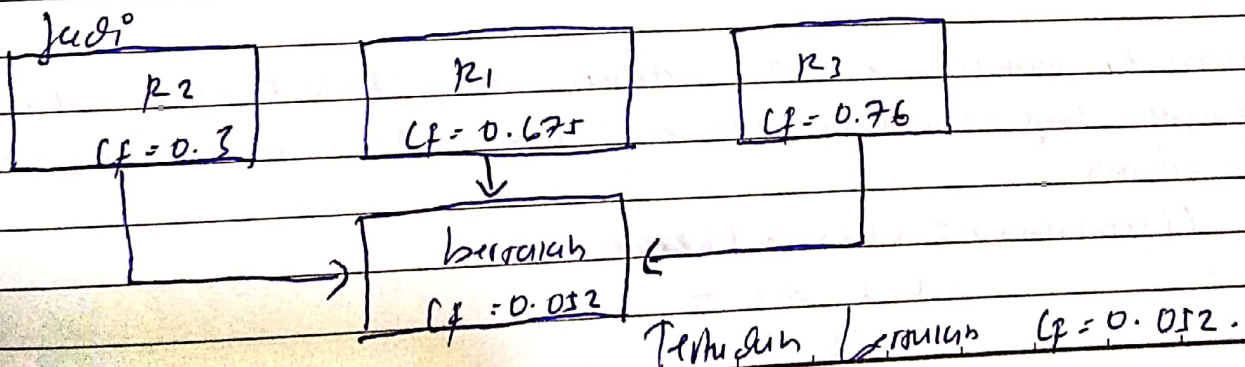 Jadi
R2
Cf = 0.3
R1
Cf = 0.675
R3
Cf = 0.76
bersalah
Cf = 0.052
Tertuduh bersalah Cf = 0.052.